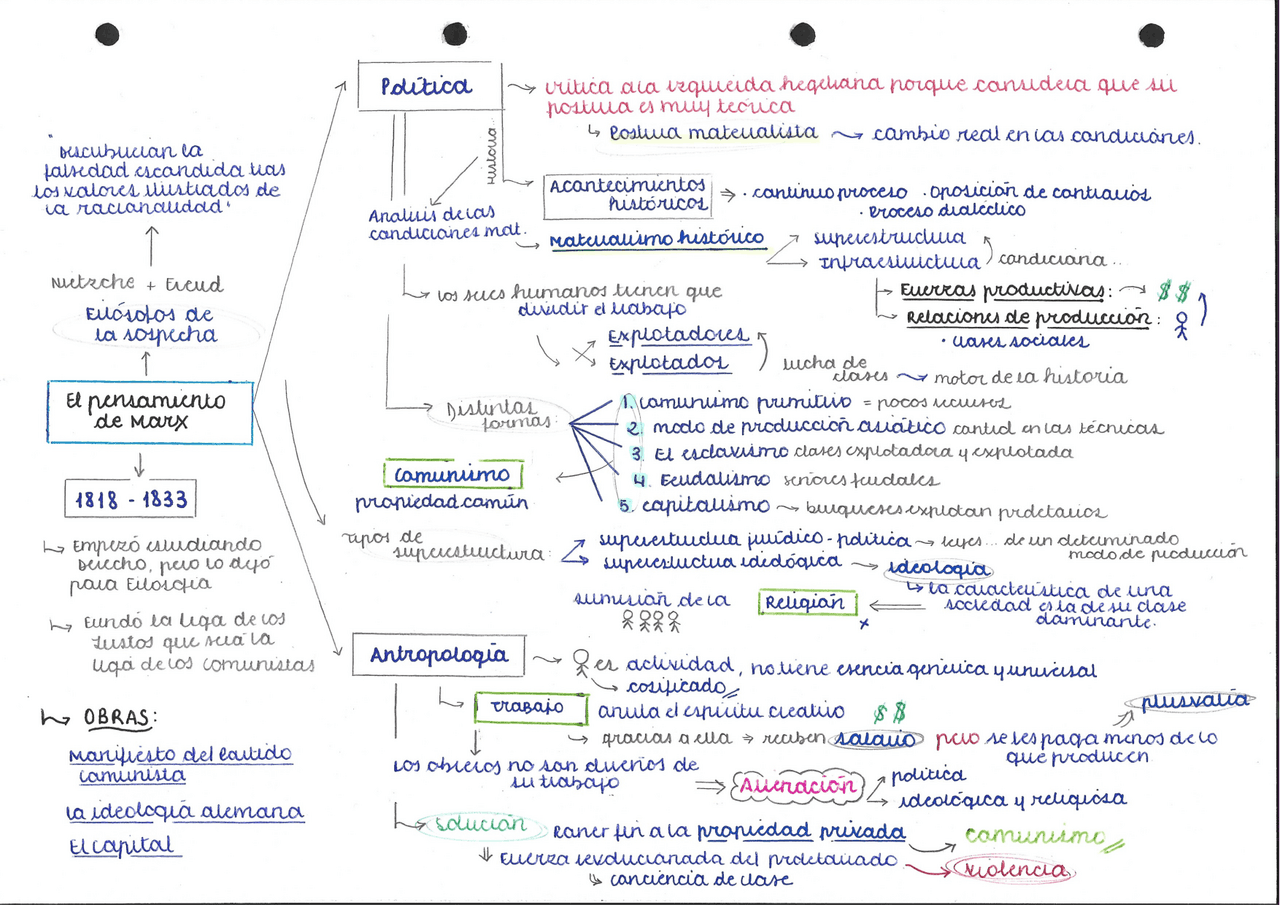 "Descubrirían la
falsedad escondida tras
los valores ilustrados de
la racionalidad"
Nietzche + Freud
Filósofos de
la sospecha
El pensamiento
de Marx
1818 - 1833
↳ Empezó estudiando
Derecho, pero lo dejó
para Filosofía
↳ Fundó la liga de los
Justos que será la
liga de los comunistas
↳ OBRAS:
Manifiesto del Partido
Comunista
La ideología alemana
El capital
Política
crítica a la izquierda hegeliana porque considera que su
postura es muy teórica
↳ Postura materialista → cambio real en las condiciones.
Historia...
Acontecimientos
históricos
⇒ · continuo proceso · oposición de contrarios
· Proceso dialéctico
Análisis de las
condiciones mat.
Materialismo histórico
superestructura
Infraestructura
condiciona...
Fuerzas productivas: → $ $
Relaciones de producción:
· clases sociales
los seres humanos tienen que
dividir el trabajo
Explotadores
Explotados
lucha de
clases → motor de la historia
Distintas
formas:
1. comunismo primitivo = pocos recursos
2. modo de producción asiático control en las técnicas
3. El esclavismo clases explotadora y explotada
4. Feudalismo señores feudales
5. capitalismo → burgueses explotan proletarios
Comunismo
propiedad común
Tipos de
superestructura:
superestructura jurídico-política → leyes... de un determinado
modo de producción
superestructura ideológica → ideología
↳ la característica de una
sociedad es la de su clase
dominante.
sumisión de la
Religión
x
Antropología
es actividad, no tiene esencia genérica y universal
cosificado
Trabajo
anula el espíritu creativo $ $
→ gracias a ella ⇒ reciben salario pero se les paga menos de lo
que producen
plusvalía
los obreros no son dueños de
su trabajo
⇒ Alienación
política
ideológica y religiosa
solución
Poner fin a la propiedad privada
comunismo
Fuerza revolucionaria del proletariado
violencia
↳ conciencia de clase